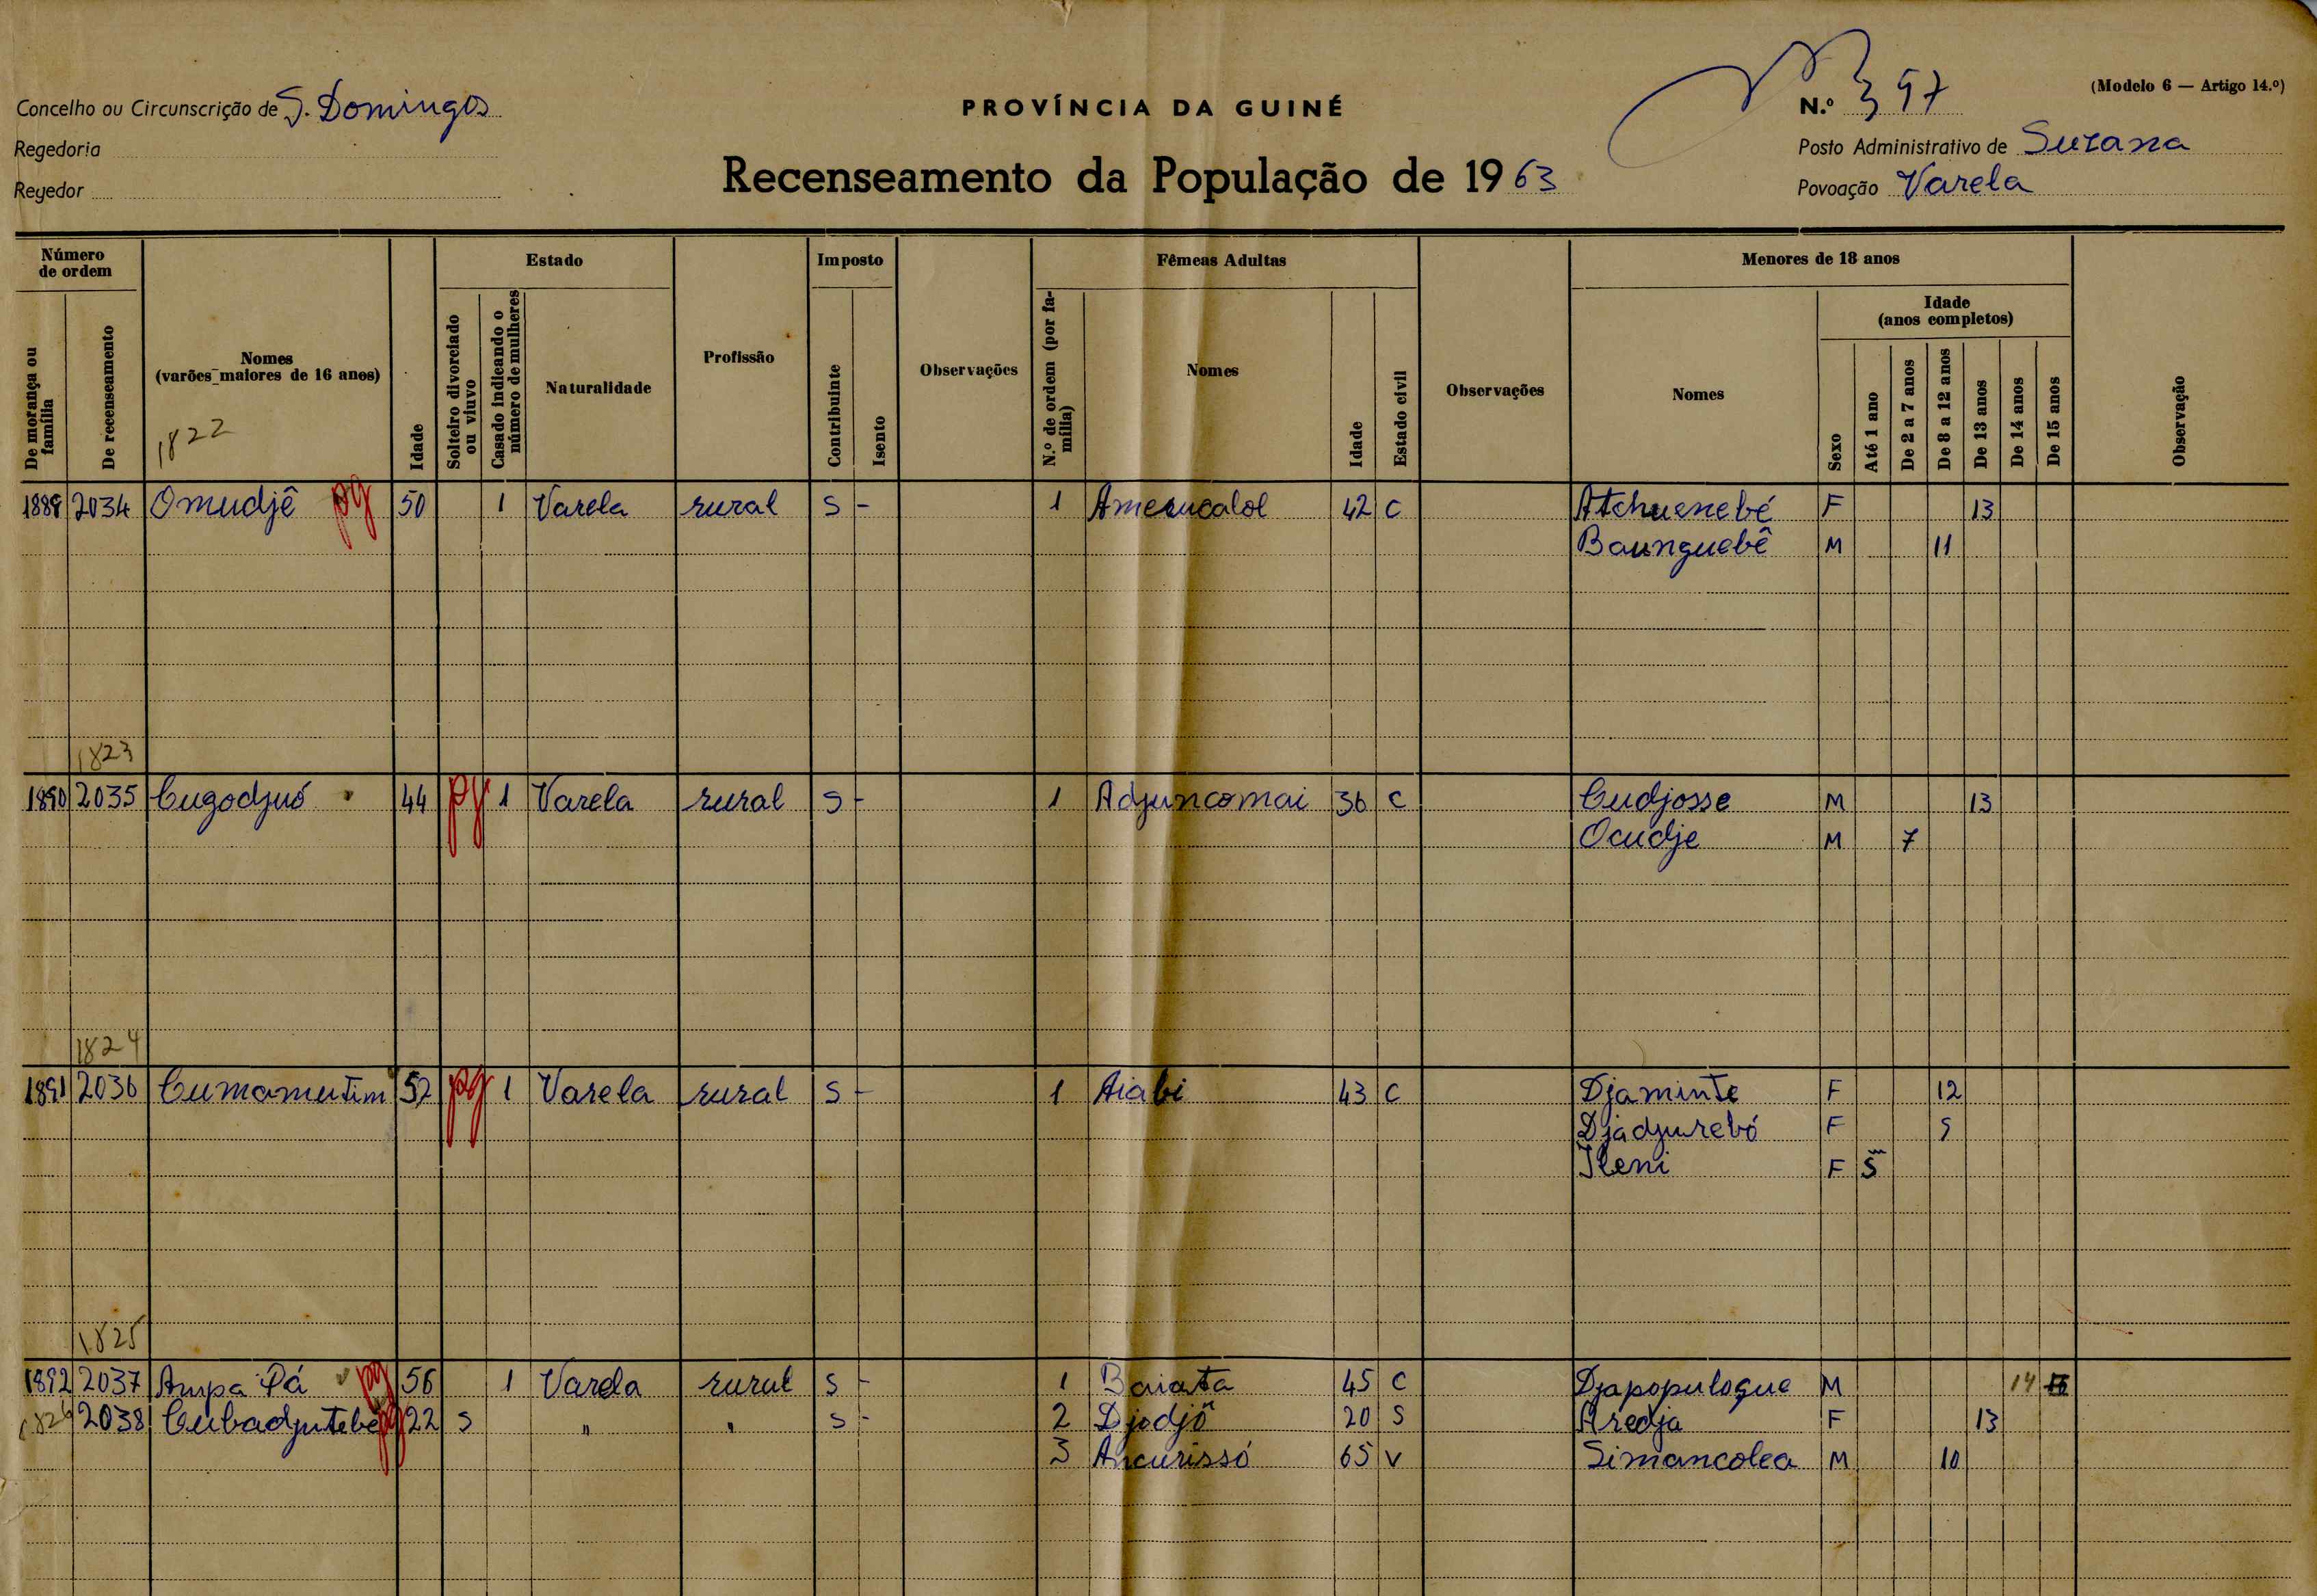 Concelho ou Circunscrição de S. Domingos
Regedoria
Regedor
PROVÍNCIA DA GUINÉ
Recenseamento da População de 1963
(Modelo 6 — Artigo 14.º)
N.º 397
Posto Administrativo de Suzana
Povoação Varela
Número de ordem
De morança ou família
De recenseamento
Nomes
(varões maiores de 16 anos)
1822
Idade
Estado
Solteiro divorciado ou viuvo
Casado indicando o número de mulheres
Naturalidade
Profissão
Imposto
Contribuinte
Isento
Observações
Fêmeas Adultas
N.º de ordem (por família)
Nomes
Idade
Estado civil
Observações
Menores de 18 anos
Nomes
Sexo
Idade
(anos completos)
Até 1 ano
De 2 a 7 anos
De 8 a 12 anos
De 13 anos
De 14 anos
De 15 anos
Observação
1889 2034 Omudjê pg 50 1 Varela rural S - 1 Amerucalol 42 C Atchuenebé F 13
Baunguebê M 11
1823
1890 2035 Cugodjuó 44 pg 1 Varela rural S - 1 Adjuncomai 36 C Cudjosse M 13
Ocudje M 7
1824
1891 2036 Cumamutim 52 pg 1 Varela rural S - 1 Aiabi 43 C Djaminte F 12
Djadjurebó F 9
Ileni F 5m
1825
1892 2037 Ampa Pá pg 56 1 Varela rural S - 1 Baiata 45 C Djapopulogue M 14
1826 2038 Cubadjutebé pg 22 S " " S - 2 Djodjô 20 S Aredja F 13
3 Ancurissó 65 V Simancolea M 10